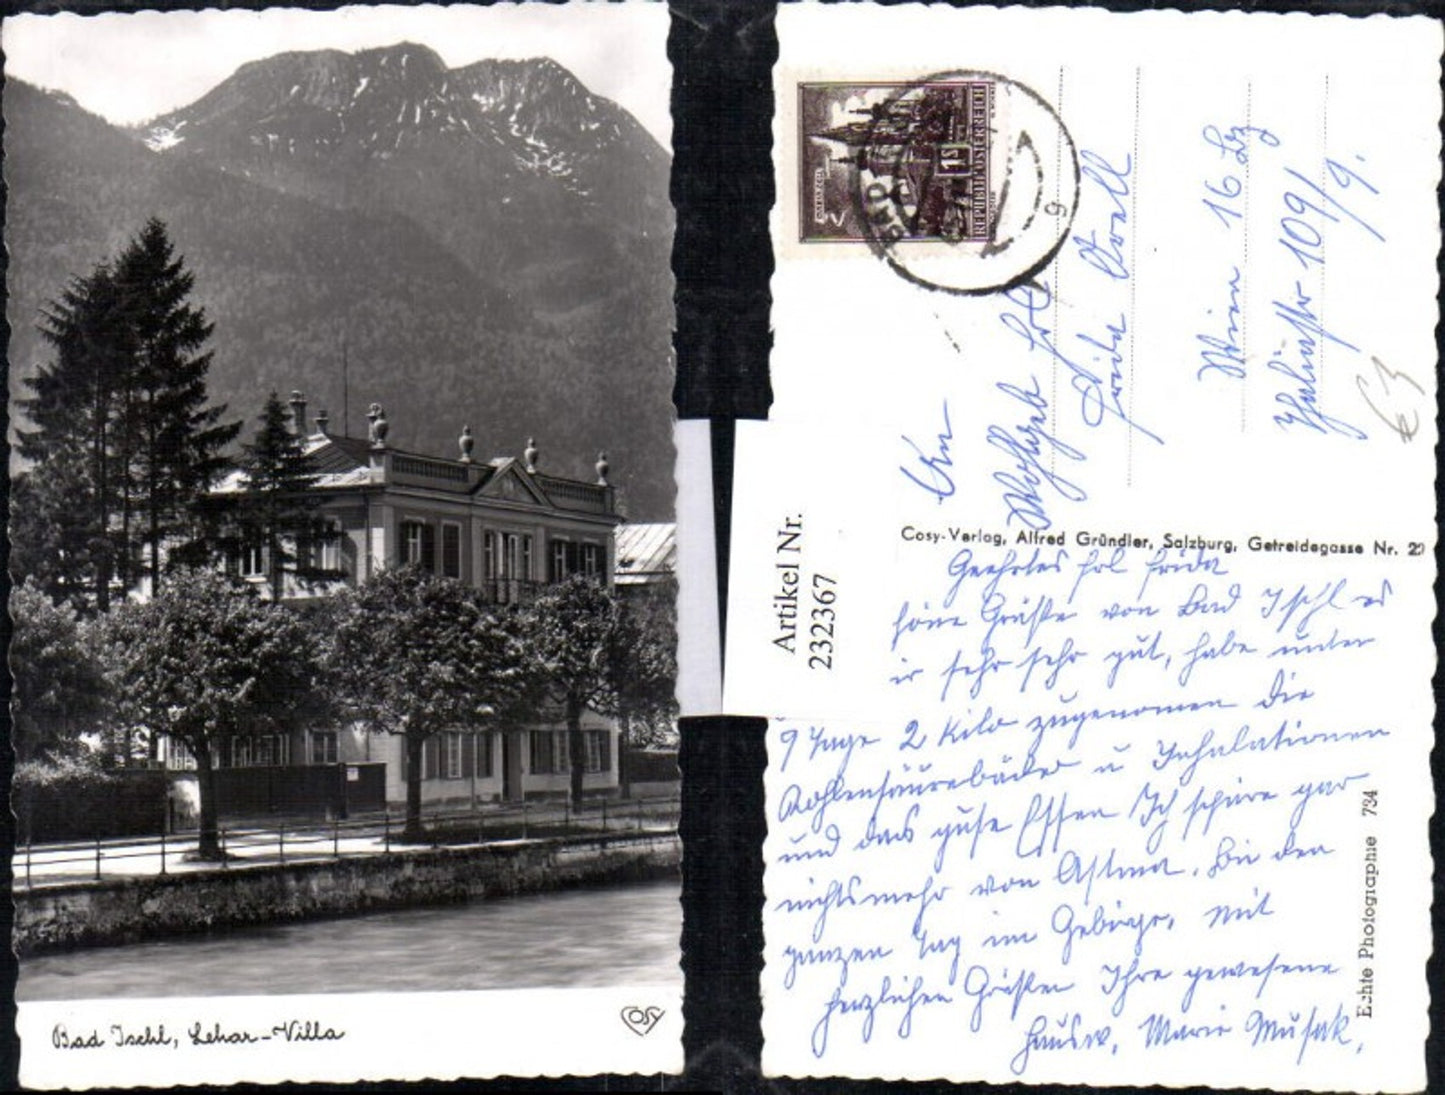 Bad Ischl, Lehar-Villa
COSY
1S
REPUBLIK ÖSTERREICH
BAD
9
An
Wohlgeb Frl
Frida
Wien 16 Bz
109/
9.
€3
Artikel Nr.
232367
Cosy-Verlag, Alfred Gründler, Salzburg, Getreidegasse Nr. 22
Geehrtes Frl Frida
Grüße von Bad Ischl es
ir sehr sehr gut, habe unter
9 Tage 2 Kilo zugenomen die
Kohlensäurebäder u Inhalationen
und das gute Essen Ich spüre gar
nichts mehr von Astma. Bin den
ganzen Tag im Gebirge, mit
herzlichen Grüßen Ihre gewesene
Hausw. Marie Musak.
Echte Photographie 734